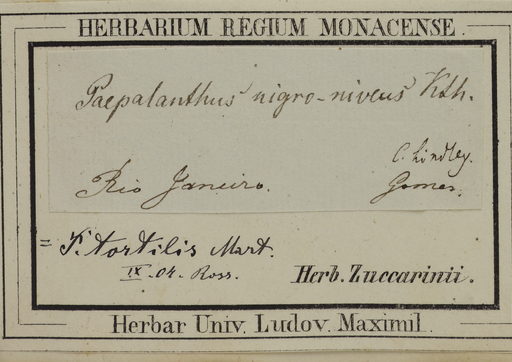 HERBARIUM REGIUM MONACENSE.
Paepalanthus nigro-niveus Kth.
C. Lindley.
Rio Janeiro. Gomez.
= P. tortilis Mart.
IX. 04. Ross.
Herb. Zuccarinii.
Herbar Univ. Ludov. Maximil.